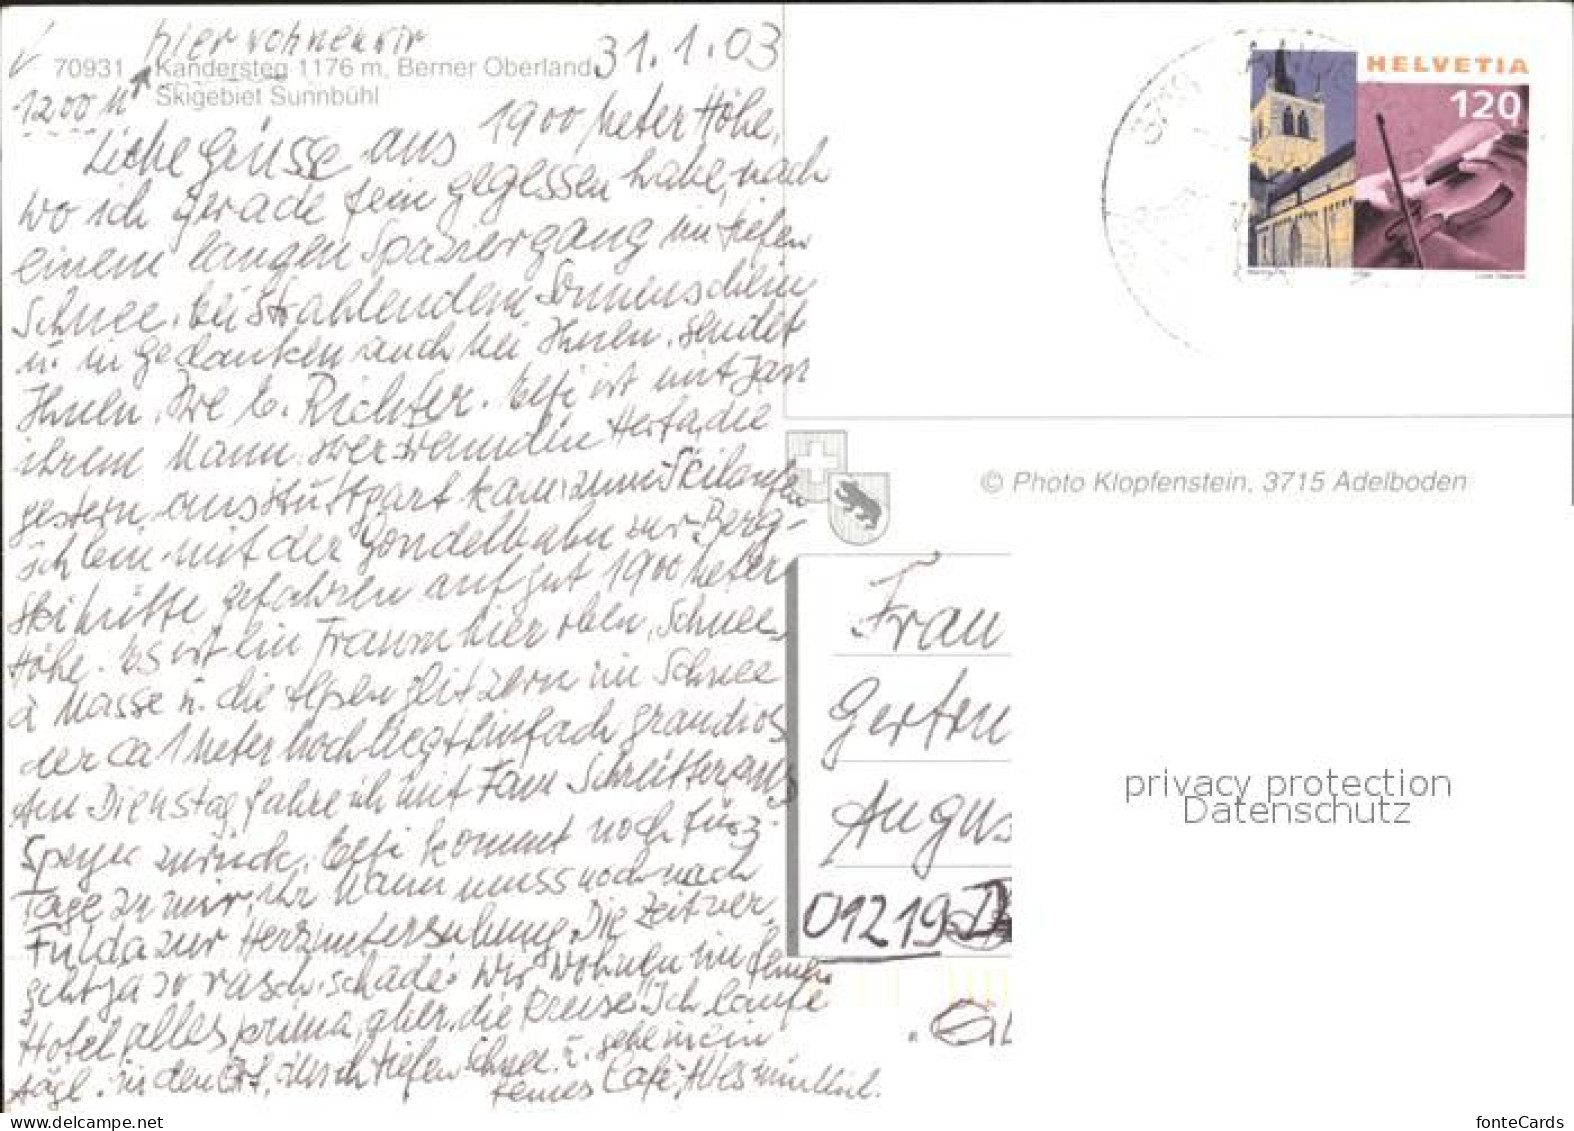 hier wohnen wir
31.1.03
70931 Kandersteg 1176 m, Berner Oberland
1200 M
Skigebiet Sunnbühl
Liebe Grüsse aus 1900 Meter Höhe,
wo ich gerade fein gegessen habe, nach
einem langen Spaziergang im tiefen
Schnee, bei Strahlendem Sonnenschein
u. in gedanken auch bei Ihnen, sendet
Ihnen, Ihre E. Richter. Elfi ist mit
ihrem Mann. Freundin Herta, die
gestern aus Stuttgart kam, zum Skilaufen
ich ein mit der Gondelbahn zur Berg-
Skihütte gefahren auf gut 1900 Meter
Höhe. Es ist ein Traum hier oben, Schnee
à Masse u. die Alpen glitzern im Schnee
der ca 1 Meter hoch liegt einfach grandios
Am Dienstag fahre ich mit Fam aus
Speyer zurück. Elfi kommt noch für 3
Tage zu mir, ihr Mann muss noch nach
Fulda zur Herzuntersuhung. Die Zeit ver-
geht ja so rasch. schade. Wir wohnen im feinen
Hotel, alles prima, aber die Preise! Ich laufe
tägl. in den Ort, durch tiefen Schnee u. gehe in ein
feines Café, Alles mündlich.
HELVETIA
120
© Photo Klopfenstein, 3715 Adelboden
Frau
Gertru
Augus
01219 D
privacy protection
Datenschutz
www.delcampe.net
fonteCards